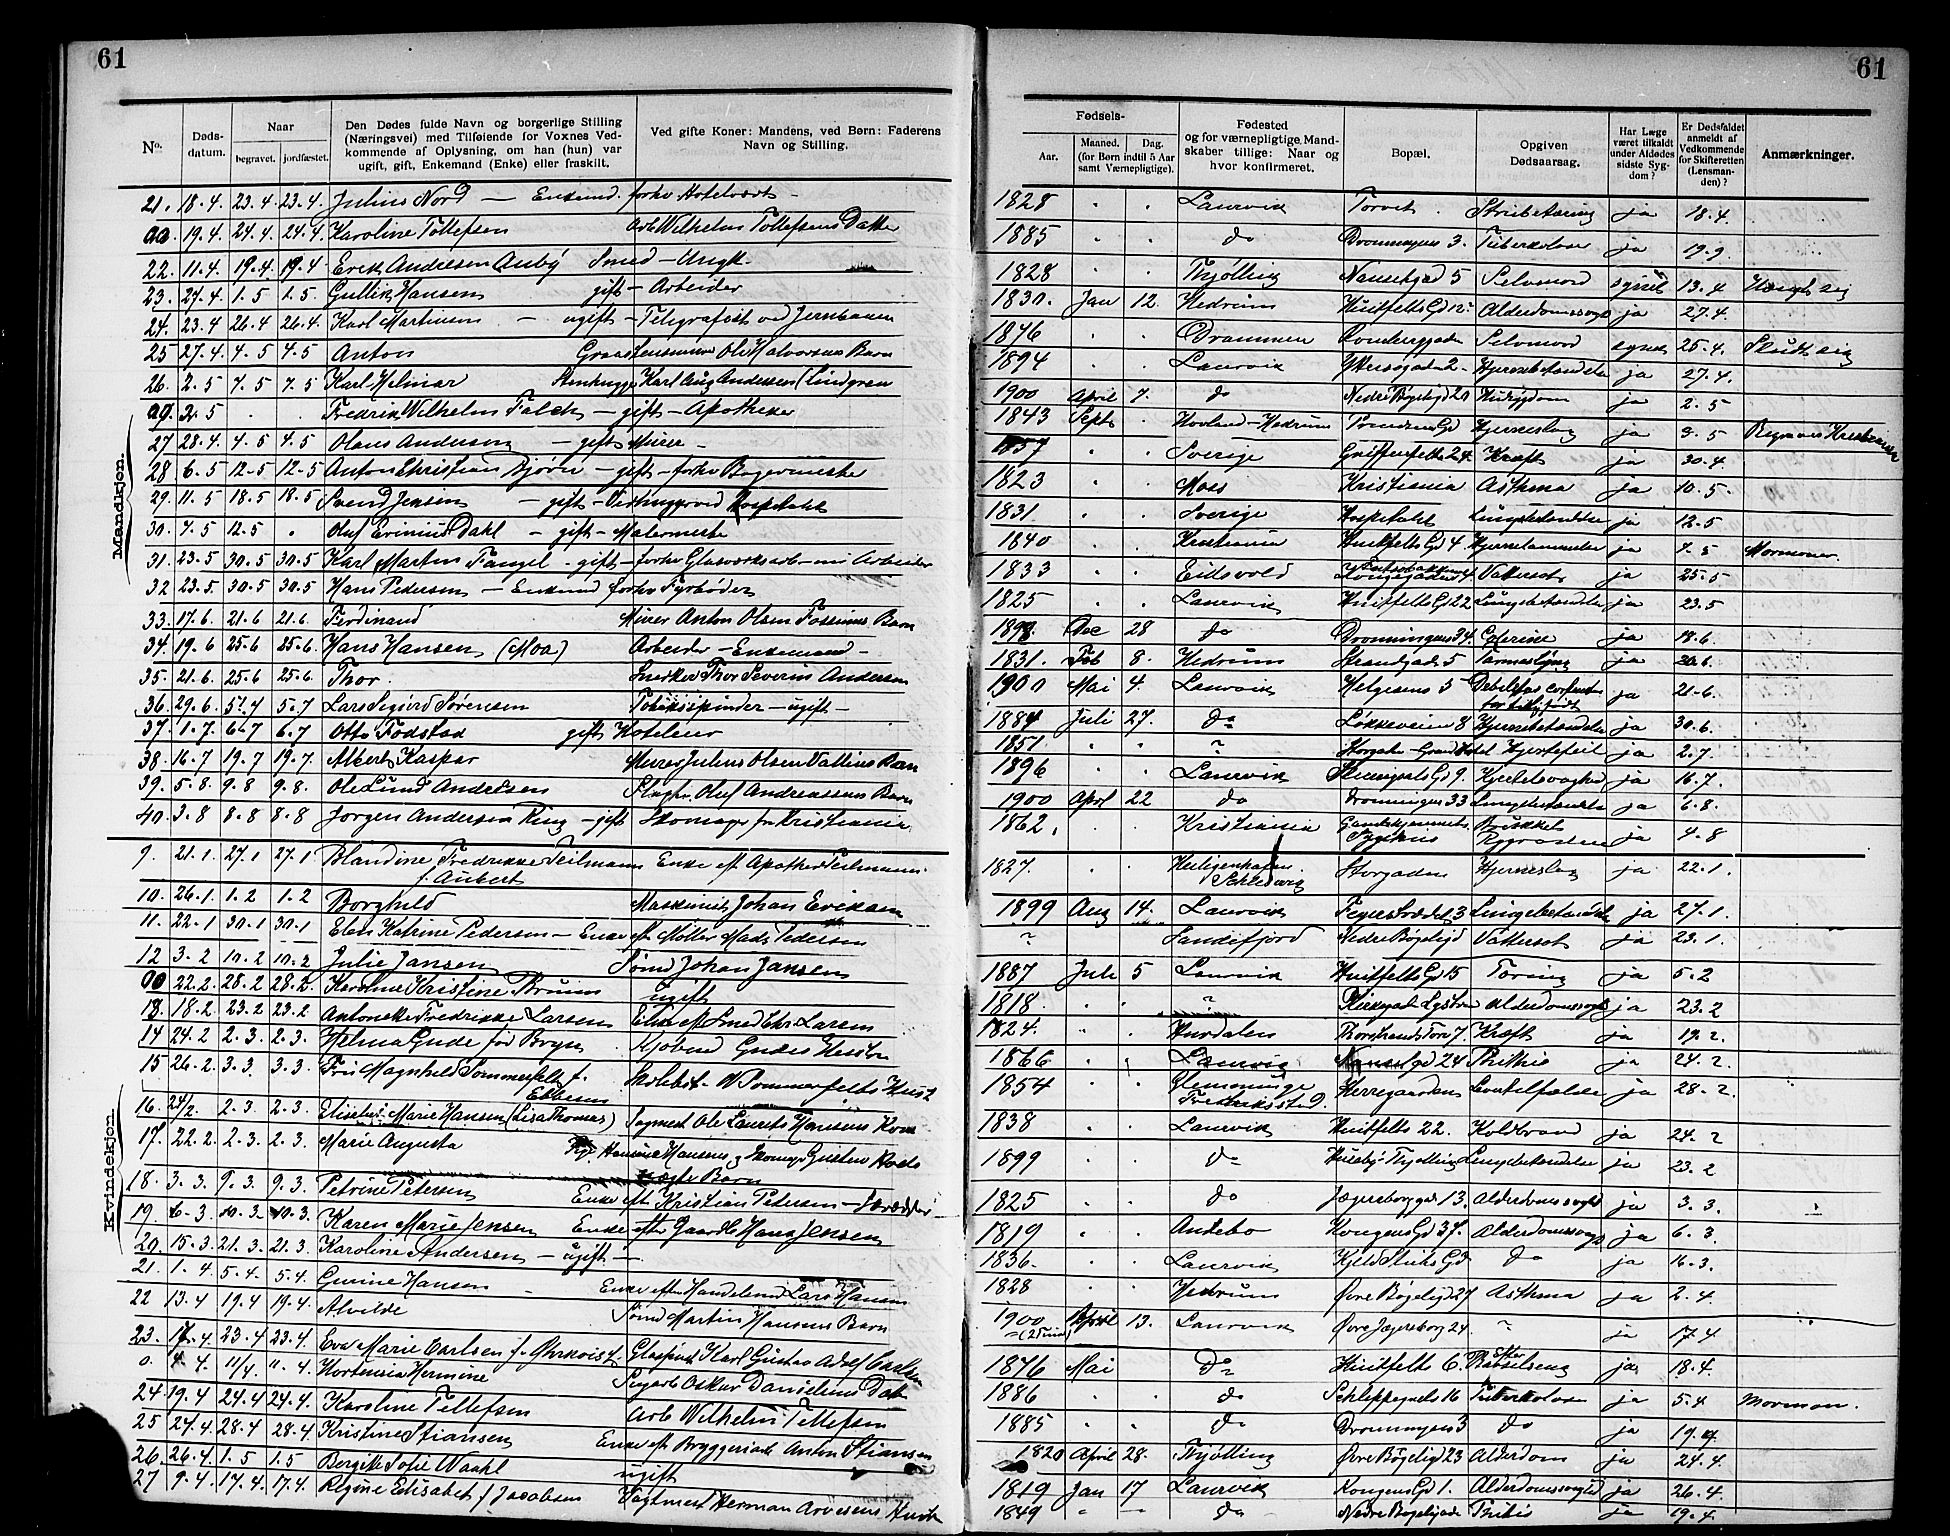 61
61
No.
Døds-
datum.
Naar
begravet.
jordfæstet.
Den Dødes fulde Navn og borgerlige Stilling
(Næringsvei) med Tilføiende for Voxnes Ved-
kommende af Oplysning, om han (hun) var
ugift, gift, Enkemand (Enke) eller fraskilt.
Ved gifte Koner: Mandens, ved Børn: Faderens
Navn og Stilling.
Fødsels-
Aar.
Maaned.
Dag.
(for Børn indtil 5 Aar
samt Værnepligtige).
Fødested
og for værnepligtige Mand-
skaber tillige: Naar og
hvor konfirmeret.
Bopæl.
Opgiven
Dødsaarsag.
Har Læge
været tilkaldt
under Afdødes
sidste Syg-
dom?
Er Dødsfaldet
anmeldt af
Vedkommende
for Skifteretten
(Lensman-
den)?
Anmærkninger.
Mandkjøn.
21. 18.4. 23.4 23.4. Julius Nord — Enkemd. forhv Hotelvært - 1828 Laurvik Torvet ja 18.4.
19.4. 24.4. 24.4. Karoline Tollefsen Arb Wilhelm Tollefsens Datter 1885 do Dronningens 3. Tuberkulose ja 19.9
22. 11.4. 19.4. 19.4 Erik Andresen Auby Smed - Ungk. 1828 Thjølling 5 Selvmord synet 13.4
23. 27.4. 1.5 1.5. Gullik Hansen gift - Arbeider 1830. Jan 12. Hedrum Huitfelts Gd Alderdomssvagh ja 27.4.
24. 23.4 26.4 26.4. Karl Martinsen - ugift - Telegrafist ved Jernbanen 1876 Drammen Selvmord synet 25.4. Skudt sig
25 27.4. 4.5 4.5 Anton Ole Halvorsens Barn 1894 Laurvik Hjernebetændelse ja 27.4.
26. 2.5 7.5 7.5 Karl Helmar Stenhugger Karl Aug Andersen (Lindgren 1900 April 7. do Nedre Bøgeligd ja 2.5
2.5 Fredrik Wilhelm Falck - gift - Apotheker 1843 Sept Hovland - Hedrum Hjerneslag ja 3.5
27 28.4. 4.5 4.5. Olaus Anderson - gift - Murer - 1857 Sverige Griffenfelts 24. Kræft ja 30.4.
28. 6.5 12.5 12.5 Anton Christian Bjørn - gift - forhv Bagermester 1823 Moss Kristiania Asthma ja 10.5.
29. 11.5 18.5 18.5 Svend Jensen - gift - Vedhugger ved Hospitalet 1831. Sverige Hospitalet Lungebetændelse ja 12.5
30. 7.5 12.5 Oluf Evinius Dahl - gift - Malermester 1840 Kristiania Huitfelts Gd 4 Hjertelammelse ja 7.5 Mormoner
31. 23.5 30.5 30.5 Karl Martin Fangel - gift - forhv Glasværksarb - nu Arbeider 1833 Eidsvold Langegaden 4. Vattersot ja 25.5
32 23.5. 30.5 30.5 Hans Pedersen - Enkemd forhv Fyrbøder 1825 Laurvik Huitfelts Gd 22 Lungebetændelse ja 23.5
33. 17.6. 21.6 21.6. Ferdinand Murer Anton Olsen Fossums Barn 1899. Dec 28 do Dronningens 34. ja 18.6.
34. 19.6 25.6 25.6. Hans Hansen (Moa) Arbeider - Enkemand - 1831. Feb 8. Hedrum Strandgad. 5 Tarmslyng ja 20.6.
35. 21.6. 25.6 25.6. Thor. Snedker Thor Severin Andersen 1900 Mai 4. Laurvik Helgesens 5 ja 21.6.
36. 29.6. 5.7 5.7 Lars Sigurd Sørensen Tobaksspinder - ugift - 1884 Juli 27. do Løkkeveien 8 Hjernebetændelse ja 30.6.
37. 1.7. 6.7 6.7 Otto Fodstad gift Hoteleier 1851. " Storgaden - Grand Hotel Hjertefeil ja 2.7.
38. 16.7 19.7 19.7. Albert Kaspar Murer Julius Olsen Vallins Barn 1896 Laurvik ja 16.7.
39. 5.8. 9.8 9.8. Ole Lund Andersen Slagter Oluf Andreassens Barn 1900 April 22 do Dronningens 33 Lungebetændelse ja 6.8.
40. 3.8 8.8 8.8 Jørgen Anderssen Ring - gift Skomager fra Kristiania 1862. Kristiania Sygehus Brækket Rygraden ja 4.8
Kvindekjøn.
9. 21.1. 27.1 27.1 Blandine Fredrikke Teilmann f. Aubert Enke eft Apotheker Teilmann 1827. Heiligenhafen Schlesvig Storgaden Hjerneslag ja 22.1.
10. 26.1. 1.2 1.2 Borghild Maskinist Johan Eriksen 1899 Aug 14. Laurvik 3 Lungebetændelse ja 27.1.
11. 22.1 30.1 30.1 Elen Katrine Pedersen - Enke eft Møller Mads Pedersen Sandefjord Nedre Bøgeligd Vattersot ja 23.1.
12 3.2 10.2 10.2 Julie Jansen Sømd Johan Jansen 1887 Juli 5 Laurvik Huitfelts Gd 15 Tæring ja 5.2
22.2. 28.2 28.2. Karoline Kristine Bruun ugift 1818. Alderdomssvagh ja 23.2
13. 18.2. 23.2 23.2 Antonette Fredrikke Larsen Enke eft Smed Chr. Larsen 1824. Hurdalen Thorstrands Torv 7. Kræft ja 19.2.
14 24.2 2.3. 2.3. Helma Gude fød Bryn Kjøbmd Gudes Hustru 1866 Laurvig Gd 24 Phthisis ja 24.2.
15 26.2. 3.3. 3.3. Fru Magnhild Sommerfelt f. Ebbesen W Sommerfelts Hust 1854 Glemminge Fredriksstad. Herregaarden ja 28.2.
16. 24/2. 2.3. 2.3. Elisebet Marie Hansen (Lisa Thomas) Sagmest Ole Laurits Hansens Kone 1838 Laurvik Huitfelts 22. Koldbrand ja 24.2
17. 22.2. 2.3. 2.3. Marie Augusta Hansens og Skomager Gustav ægte Barn 1899 do Huseby - Thjølling Lungebetændelse ja 23.2
18. 3.3. 9.3. 9.3. Petrine Petersen Enke eft Kristian Petersen - Skrædder 1825 do Jægersborggad 13. Alderdomssvagh ja 3.3.
19. 6.3. 10.3. 10.3. Karen Marie Jensen Enke efter Gaardb Hans Jensen 1819 Andebo Kongens Gd 37. Alderdomssvagh ja 6.3.
20. 15.3. 21.3. 21.3. Karoline Andersen - ugift - 1836. Laurvik Kjeld Stubs Gd do ja 16.3.
21. 1.4. 5.4. 5.4. Gurine Hansen Enke efter Handelsmd Lars Hansen 1828 Hedrum Øvre Bøgeligd 27 Asthma ja 2.4.
22 13.4 19.4 19.4. Alvilde Sømd Martin Hansens Barn 1900 April 13. Laurvik Øvre Jægersborg 24. " ja 17.4.
23. 17.4. 23.4 23.4. Eva Marie Carlsen f. Ørkvist Glaspust Karl Gustav Adolf Carlsen 1876 Mai do Huitfelts 6. Efter Barselseng ja 18.4.
0. 4.4. 11/4. 11.4. Hortensia Hermine Oskar Danielsens Dat 1886 do Schleppegrels 16 Tuberkulose ja 5.4 Mormon.
24. 19.4 24.4 24.4. Karoline Tellefsen Arb Wilhelm Tellefsen 1885 do Dronningens 3 do ja 19.4.
25 24.4. 28.4 28.4 Kristine Stiansen Enke eft Bryggeriarb Anton Stiansen 1820 April 28. Thjølling Øvre Bøgeligd 23 Alderdom ja 24.4.
26. 26.4. 1.5 1.5 Bergitte Sofie Waahl ugift 1819 Jan 17 Laurvik Kongens Gd 1. Alderdomssvaghd ja 26.4.
27 9.4. 17.4. 17.4. Regine Elisabet f. Jacobsen Vagtmest Herman Arvesens Hustr 1849 " - do Nedre Bøgeligade Phtisis ja 19.4.